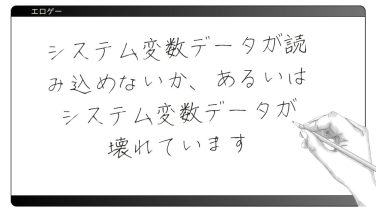 エロゲー
システム変数データが読
み込めないか、あるいは
システム変数データが
壊れています